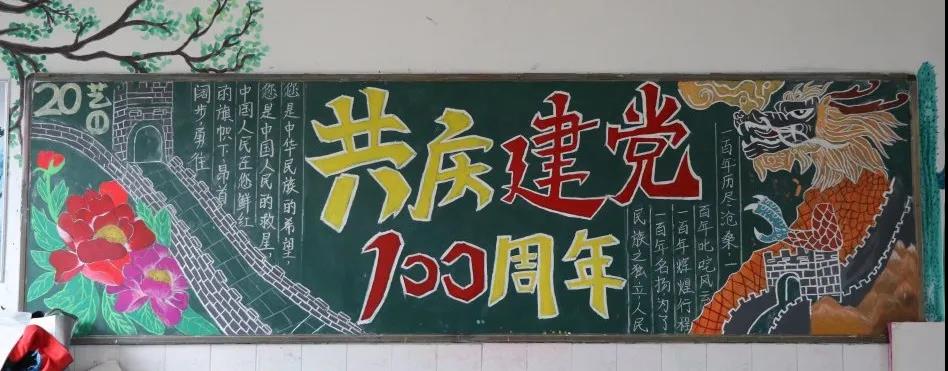 20艺
您是中华民族的希望，
您是中国人民的救星，
中国人民在您鲜红
的旗帜下昂首
阔步勇往
共庆建党
100周年
一百年历尽沧桑，一
百年叱咤风云
一百年辉煌行程
一百年名扬为了
民族之独立人民